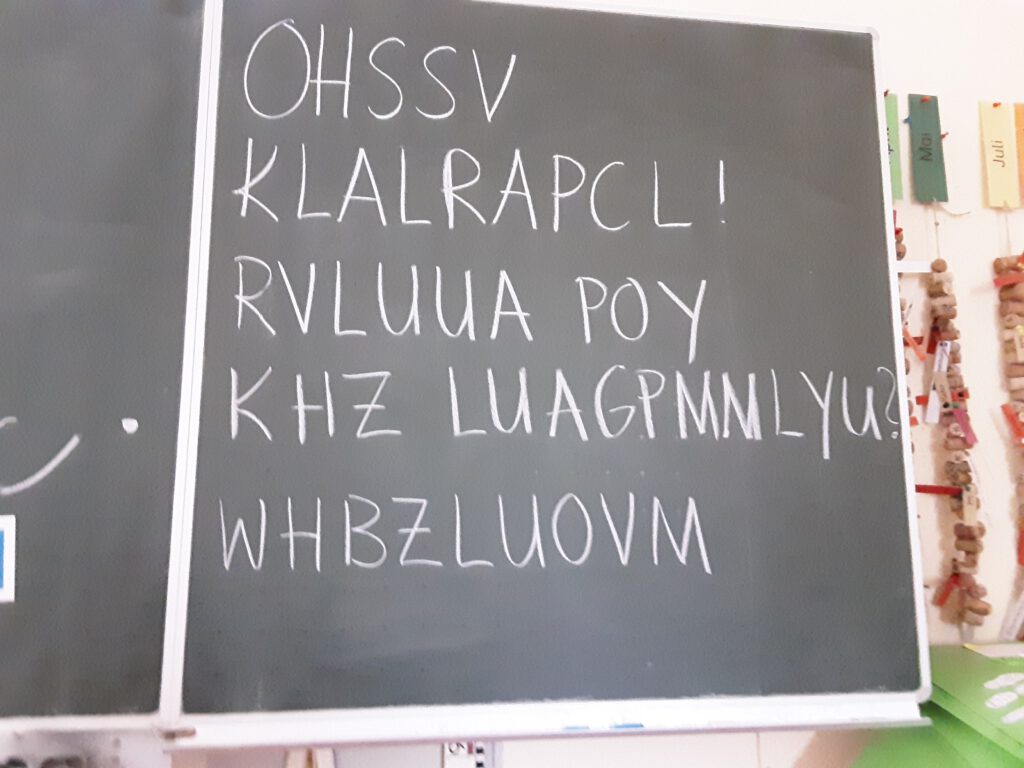 OHSSV
KLALRAPCL!
RVLUUA POY
KHZ LUAGPMMLYU?
WHBZLUOVM
Mai
Juli